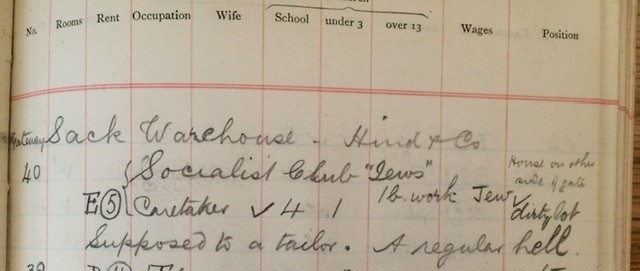 No. Rooms Rent Occupation Wife School under 3 over 13 Wages Position
Gateway Sack Warehouse - Hind & Co
40 {Socialist Club "Jews" House on other side of gate
E(5) Caretaker ✓ 4 1 1b. work Jew ✓ dirty lot
Supposed to a tailor. A regular hell.